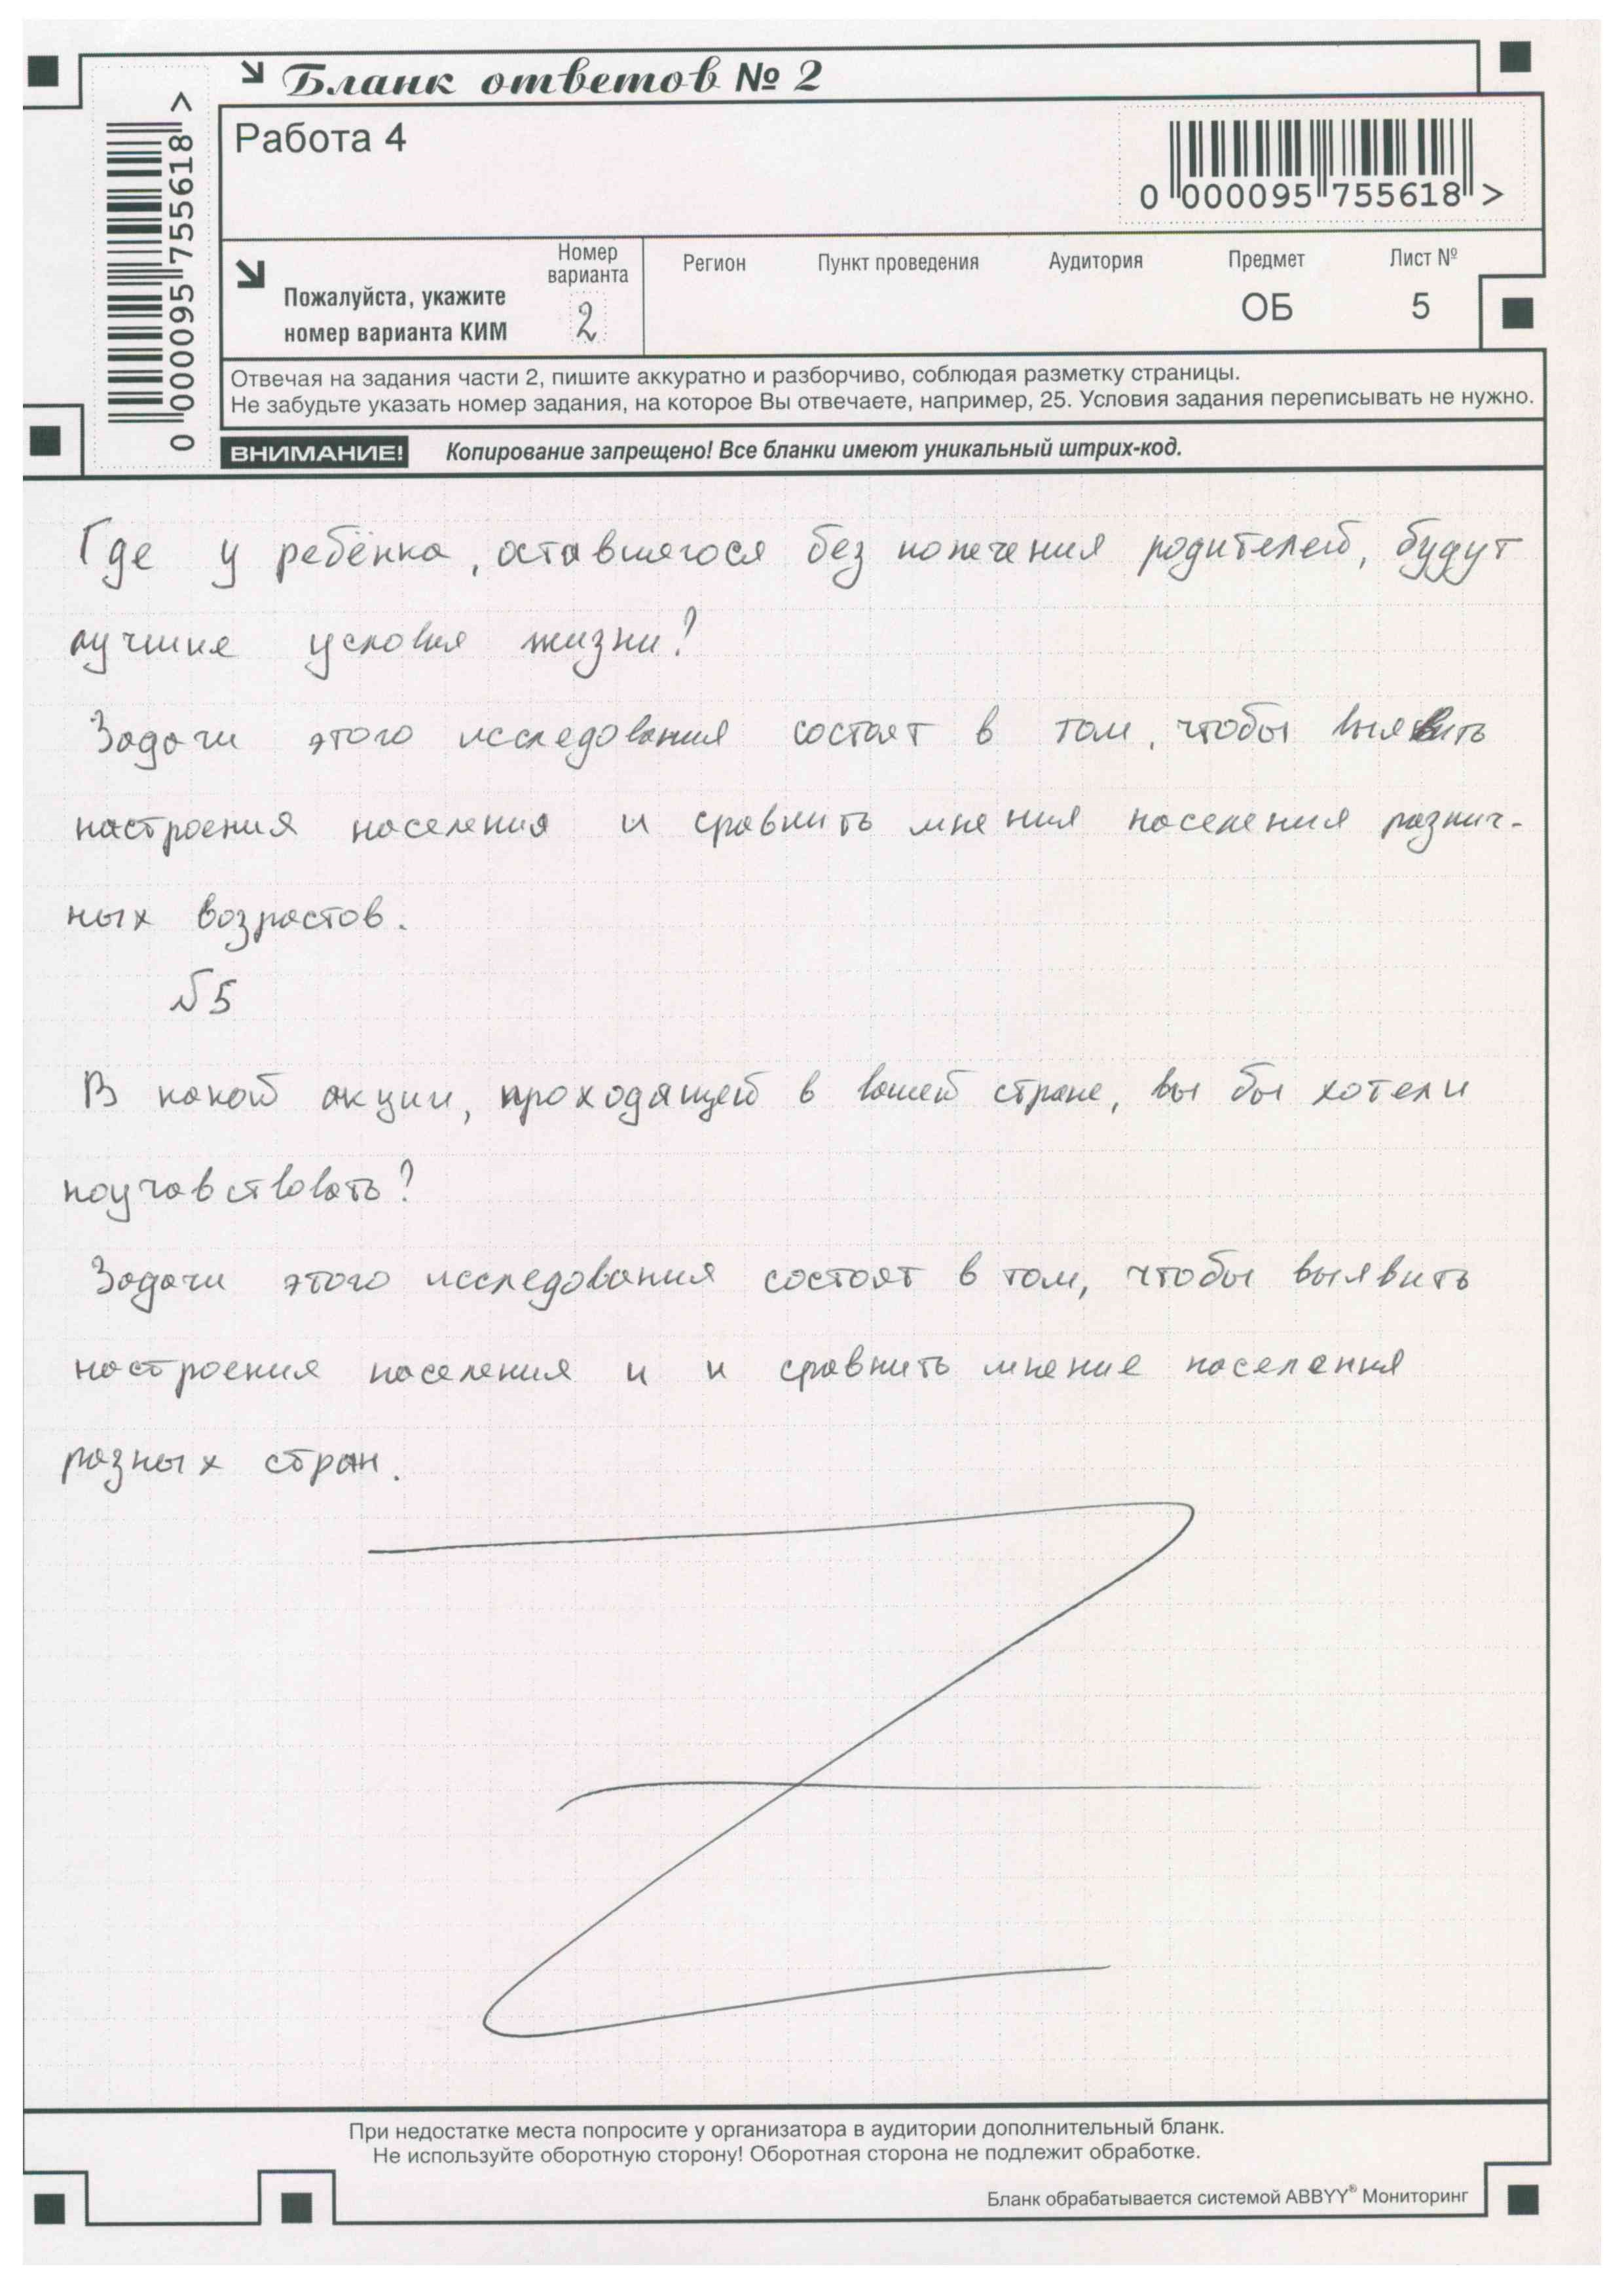 Бланк ответов № 2
Работа 4
0 000095 755618 >
0 000095 755618 >
Пожалуйста, укажите
номер варианта КИМ
Номер
варианта
2
Регион
Пункт проведения
Аудитория
Предмет
ОБ
Лист №
5
Отвечая на задания части 2, пишите аккуратно и разборчиво, соблюдая разметку страницы.
Не забудьте указать номер задания, на которое Вы отвечаете, например, 25. Условия задания переписывать не нужно.
ВНИМАНИЕ! Копирование запрещено! Все бланки имеют уникальный штрих-код.
Где у ребёнка, оставшегося без попечения родителей, будут
лучшие условия жизни?
Задачи этого исследования состоят в том, чтобы выявить
настроения населения и сравнить мнения населения различ-
ных возрастов.
№5
В какой акции, проходящей в вашей стране, вы бы хотели
поучавствовать?
Задачи этого исследования состоят в том, чтобы выявить
настроения населения и и сравнить мнение населения
разных стран.
При недостатке места попросите у организатора в аудитории дополнительный бланк.
Не используйте оборотную сторону! Оборотная сторона не подлежит обработке.
Бланк обрабатывается системой ABBYY® Мониторинг